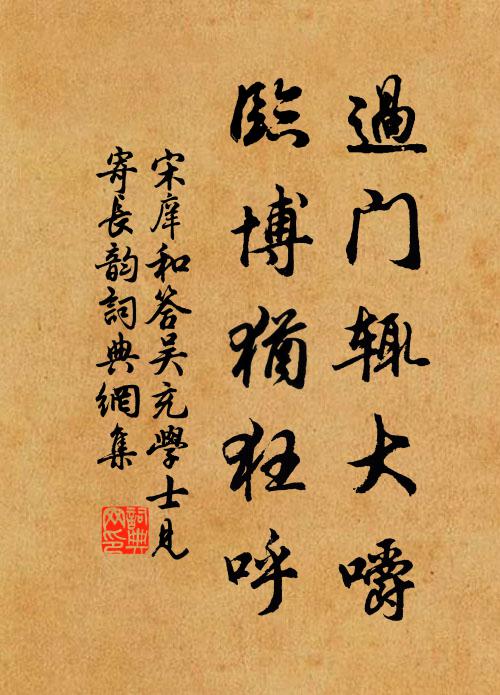 過门辄大嚼
臨博猶狂呼
宋庠和答吴充學士見
寄長韵詞典網集
詞典网印